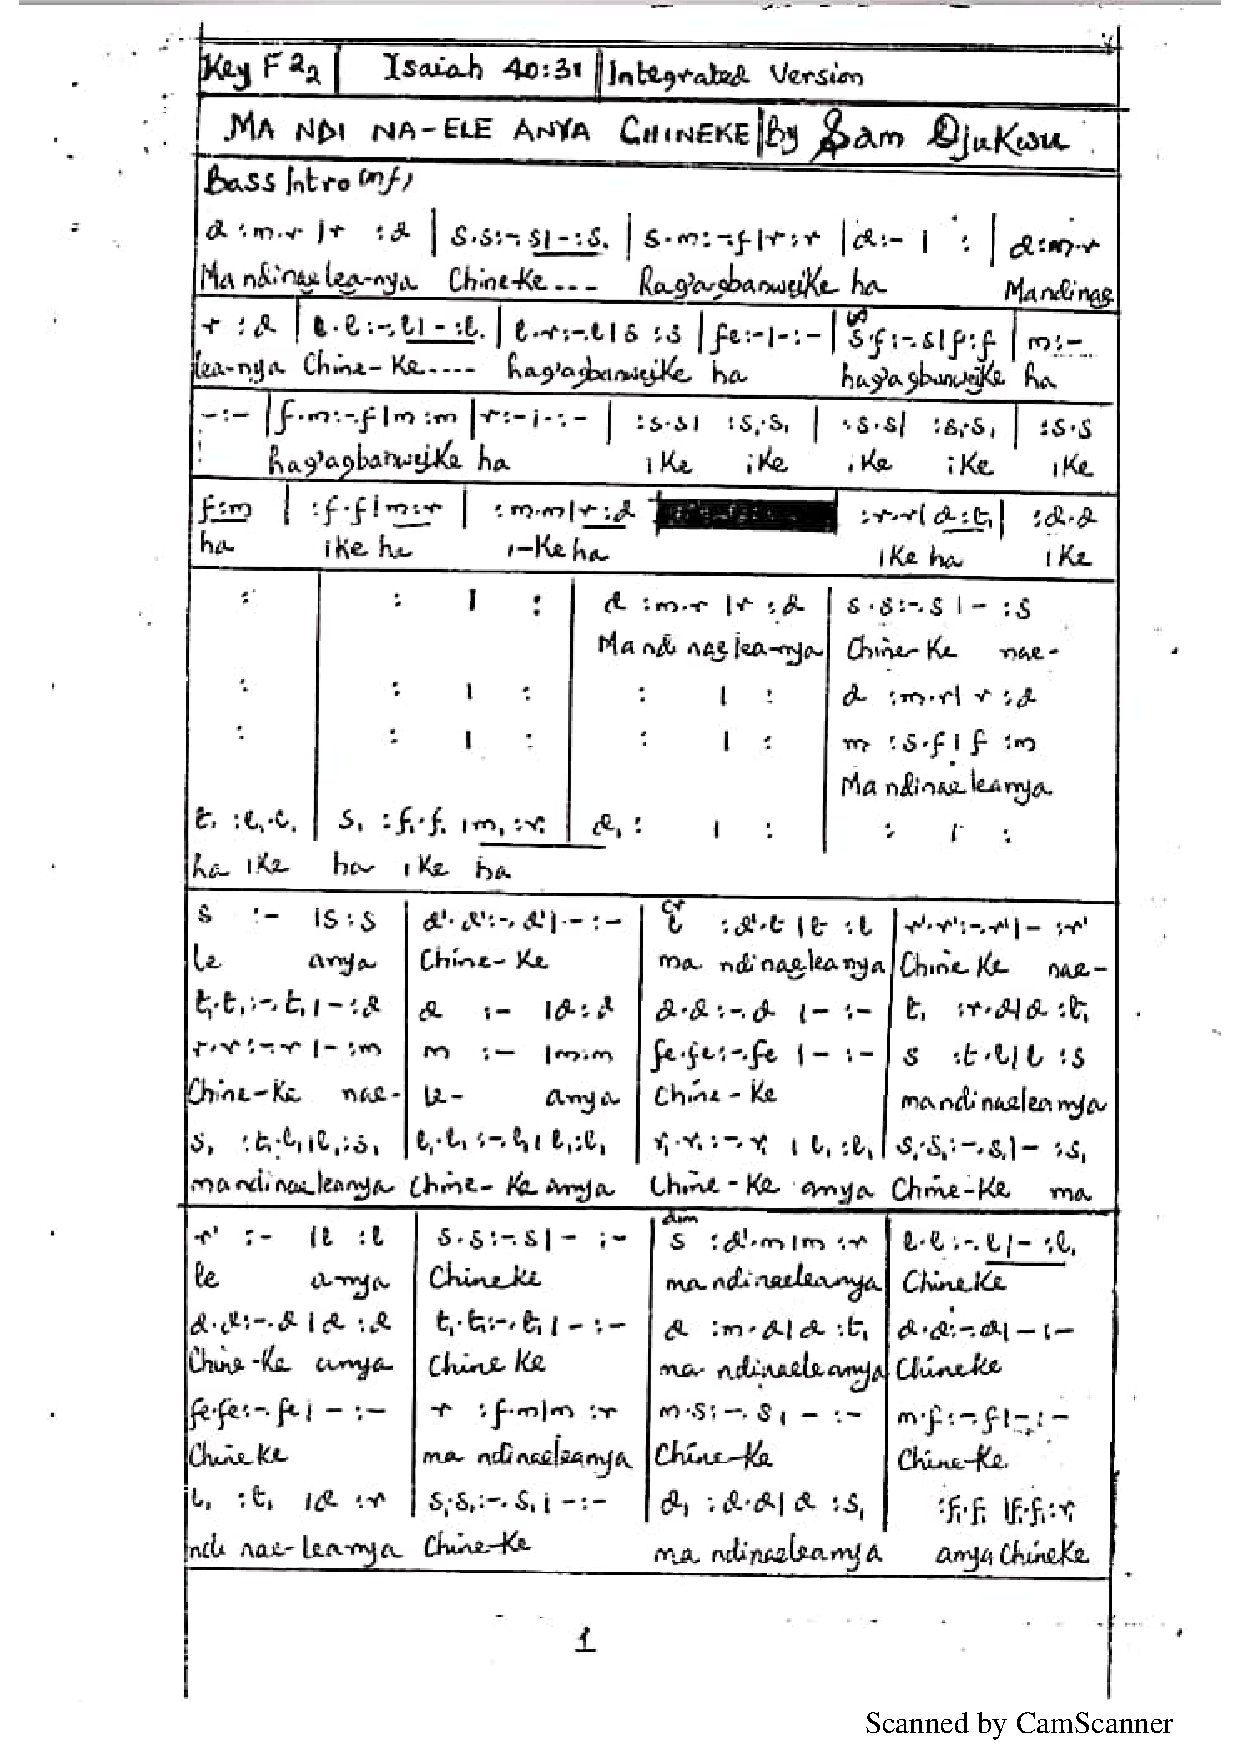 Key F 2/2 | Isaiah 40:31 || Integrated Version
MA NDI NA-ELE ANYA CHINEKE | By Sam Ojukwu
Bass Intro (mf)
d :m.r |r :d | s.s:-.s|-:s. | s.m:-.f|r:r | d:- | : | d:m.r
Mandinaelea-nya Chine-ke --- Rag'agbanweike ha Mandinae
r :d | l.l:-.l|-:l. | l.r:-.l|s :s | fe:-|-:- | s.f:-.s|f:f | m:-
lea-nya Chine-Ke---- hag'agbanweike ha hag'agbanweike ha
-:- | f.m:-.f|m :m | r:-|-:- | :s.s| :s₁.s₁ | :s.s| :s₁.s₁ | :s.s
hag'agbanweike ha iKe iKe iKe iKe iKe
f:m | :f.f|m:r | :m.m|r:d :r.r|d:t₁ | :d.d
ha ike ha i-Ke ha iKe ha iKe
: | : | : | d :m.r |r :d | s.s:-.s |- :s
Mandi naelea-nya Chine-Ke nae-
: | : | : | : | : | d :m.r| r :d
: | : | : | : | : | m :s.f| f :m
Mandinaeleanya
t₁ :l₁.l₁ | s₁ :f₁.f₁ |m₁ :r₁ | d₁ : | : | : | :
ha iKe ha iKe ha
s :- |s :s | d'.d':-.d'|-:- | t :d'.t |t :l | r'.r':-.r'|- :r'
le anya Chine-Ke ma ndinaeleanya Chine Ke nae-
t₁.t₁:-.t₁|-:d | d :- |d:d | d.d:-.d |-:- | t₁ :r.d|d :t₁
r.r:-.r |-:m | m :- |m:m | fe.fe:-.fe |-:- | s :t.l|l :s
Chine-Ke nae- le- anya Chine-Ke mandinaeleanya
s₁ :t₁.l₁|l₁:s₁ | l₁.l₁:-.l₁| l₁:l₁ | r₁.r₁:-.r₁ | l₁:l₁ | s₁.s₁:-.s₁|- :s₁
mandinaeleanya Chine-Ke anya Chine-Ke anya Chine-Ke ma
r' :- |l :l | s.s:-.s|- :- | dim s :d'.m|m :r | l.l:-.l|-:l.
le anya Chineke mandinaeleanya Chineke
d.d:-.d |d :d | t₁.t₁:-.t₁ |-:- | d :m.d|d :t₁ | d.d:-.d|-:-
Chine-Ke anya Chine Ke ma ndinaeleanya Chineke
fe.fe:-.fe |-:- | r :f.m|m :r | m.s:-.s|-:- | m.f:-.f|-:-
Chine Ke ma ndinaeleanya Chine-Ke Chine-Ke.
t₁ :t₁ |d :r | s₁.s₁:-.s₁|-:- | d₁ :d.d|d :s₁ | :f₁.f₁ |f₁.f₁:r₁
ndi nae-leanya Chine-Ke ma ndinaeleanya anya Chineke
1
Scanned by CamScanner